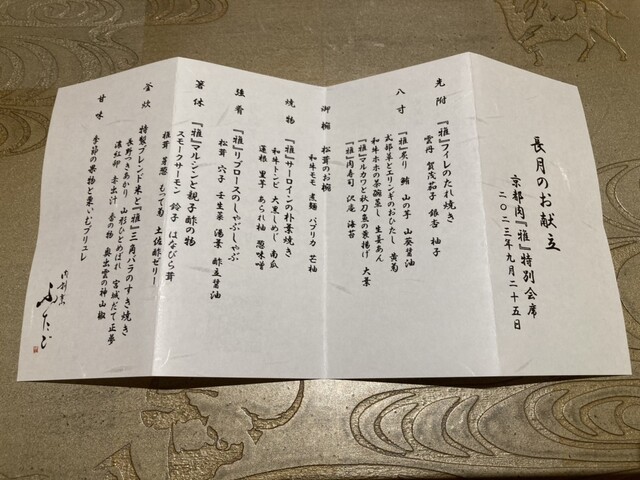 長月のお献立
京都肉『雅』特別会席
二〇二三年九月二十五日
先附
『雅』フィレのたれ焼き
雲丹 賀茂茄子 銀杏 柚子
八寸
『雅』炙り 鮪 山の芋 山葵醤油
式部草とエリンギのおひたし 黄菊
和牛ホホの茶碗蒸し 生姜あん
『雅』マルカワと秋刀魚の巻揚げ 大葉
『雅』肉寿司 沢庵 海苔
御椀
松茸のお椀
和牛モモ 煮麺 パプリカ 芒柚
焼物
『雅』サーロインの朴葉焼き
和牛トンビ 大黒しめじ 南瓜
蓮根 里芋 あられ柚 葱味噌
強肴
『雅』リブロースのしゃぶしゃぶ
松茸 穴子 壬生菜 湯葉 酢立醤油
箸休
『雅』マルシンと親子酢の物
スモークサーモン 鈴子 はなびら茸
椎茸 芽葱 もって菊 土佐酢ゼリー
釜炊
特製ブレンド米と『雅』三角バラのすき焼き
長野つきあかり 山形ひとめぼれ 宮城だて正夢
濃紅卵 赤出汁 香の物 奥出雲の神山椒
甘味
季節の果物と栗いむブリュレ
肉割烹
ふたご